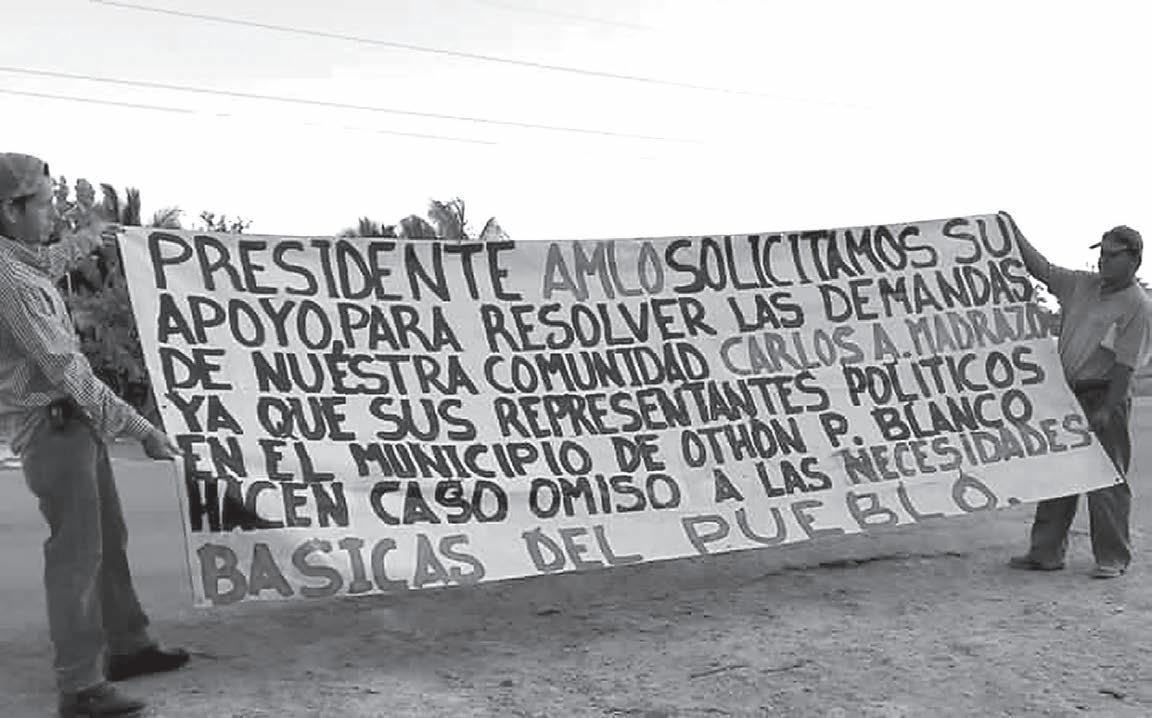 PRESIDENTE AMLO SOLICITAMOS SU
APOYO, PARA RESOLVER LAS DEMANDAS
DE NUESTRA COMUNIDAD CARLOS A. MADRAZO
YA QUE SUS REPRESENTANTES POLITICOS
EN EL MUNICIPIO DE OTHON P. BLANCO
HACEN CASO OMISO A LAS NECESIDADES
BASICAS DEL PUEBLO.